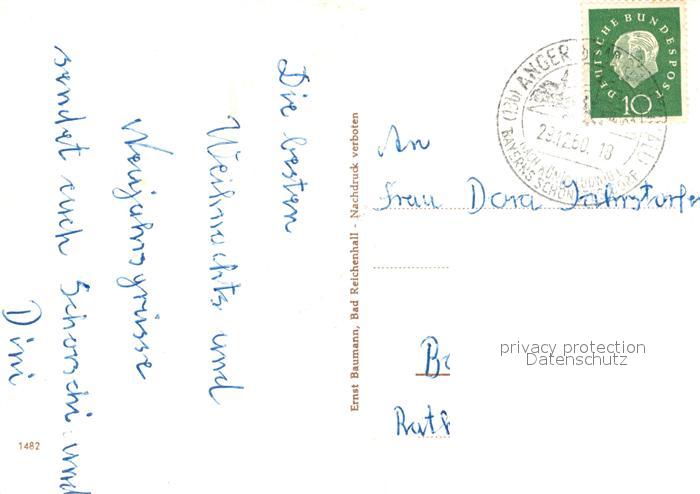 Die besten
Weihnachts und
Neujahrsgrüsse
sendet euch Schorschi und
Dini
1482
Ernst Baumann, Bad Reichenhall - Nachdruck verboten
DEUTSCHE BUNDESPOST
10
(13b) ANGER
29.12.60. 18
BAYERNS SCHÖN
An
Frau Dora
privacy protection
Datenschutz